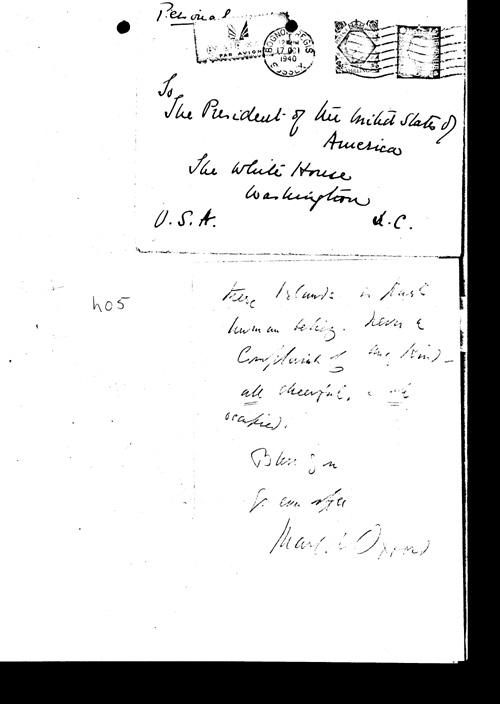 Personal
PAR AVION
BOGNOR REGIS
17 OC
1940
SUSSEX
To
The President of the United States of
America
The White House
Washington
U.S.A. D.C.
405
these Islands
human being. Never a
Complaint of any kind –
all cheerful, &
occupied.
Bless you
Margot Oxford